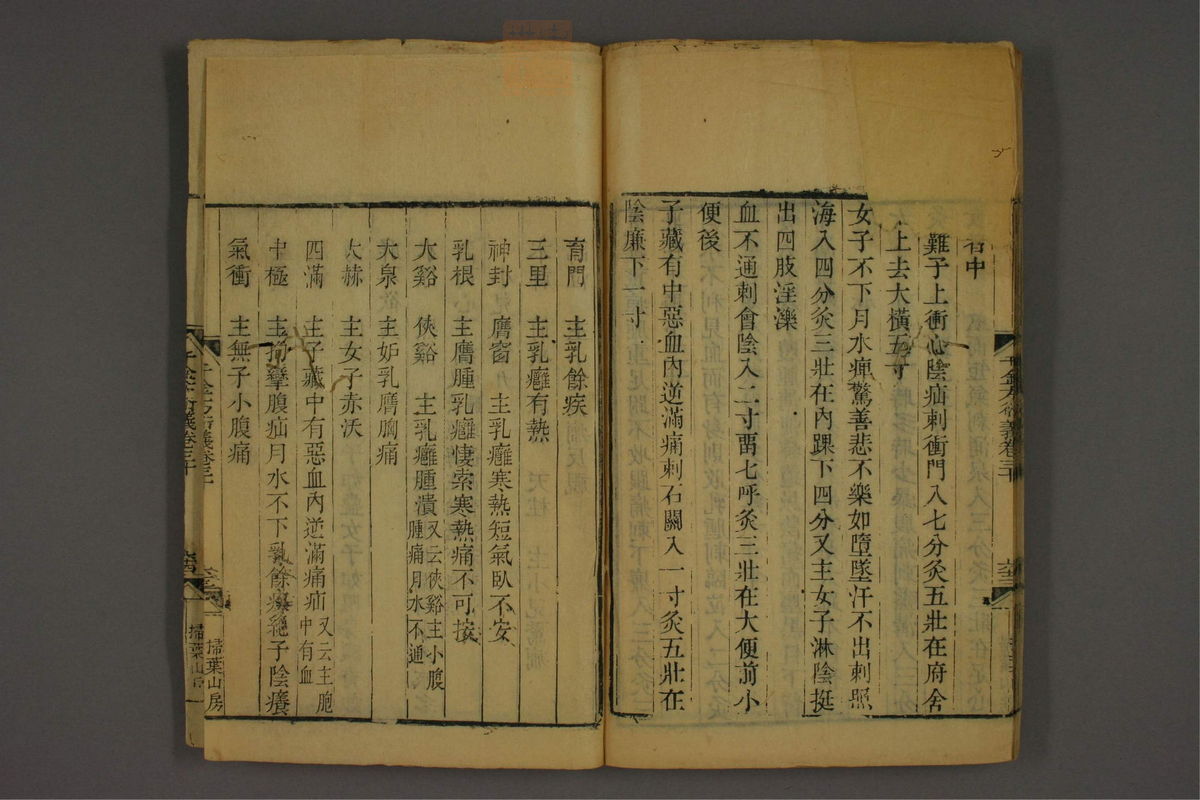 右中
難子上衝心陰疝刺衝門入七分灸五壯在府舍
上去大橫五寸
女子不下月水痹驚善悲不樂如墮墜汗不出刺照
海入四分灸三壯在內踝下四分又主女子淋陰挺
出四肢淫濼
血不通刺會陰入二寸畱七呼灸三壯在大便前小
便後
子藏有中惡血內逆滿痛刺石關入一寸灸五壯在
陰廉下一寸
肓門　主乳餘疾
三里　主乳癰有熱
神封　膺窗　主乳癰寒熱短氣臥不安
乳根　主膺腫乳癰悽索寒熱痛不可按
大谿　俠谿　主乳癰腫潰又云俠谿主小腹腫痛月水不通
大泉　主妒乳膺胸痛
大赫　主女子赤沃
四滿　主子藏中有惡血內逆滿痛疝又云主胞中有血
中極　主拘攣腹疝月水不下乳餘疾絕子陰癢
氣衝　主無子小腹痛
掃葉山房